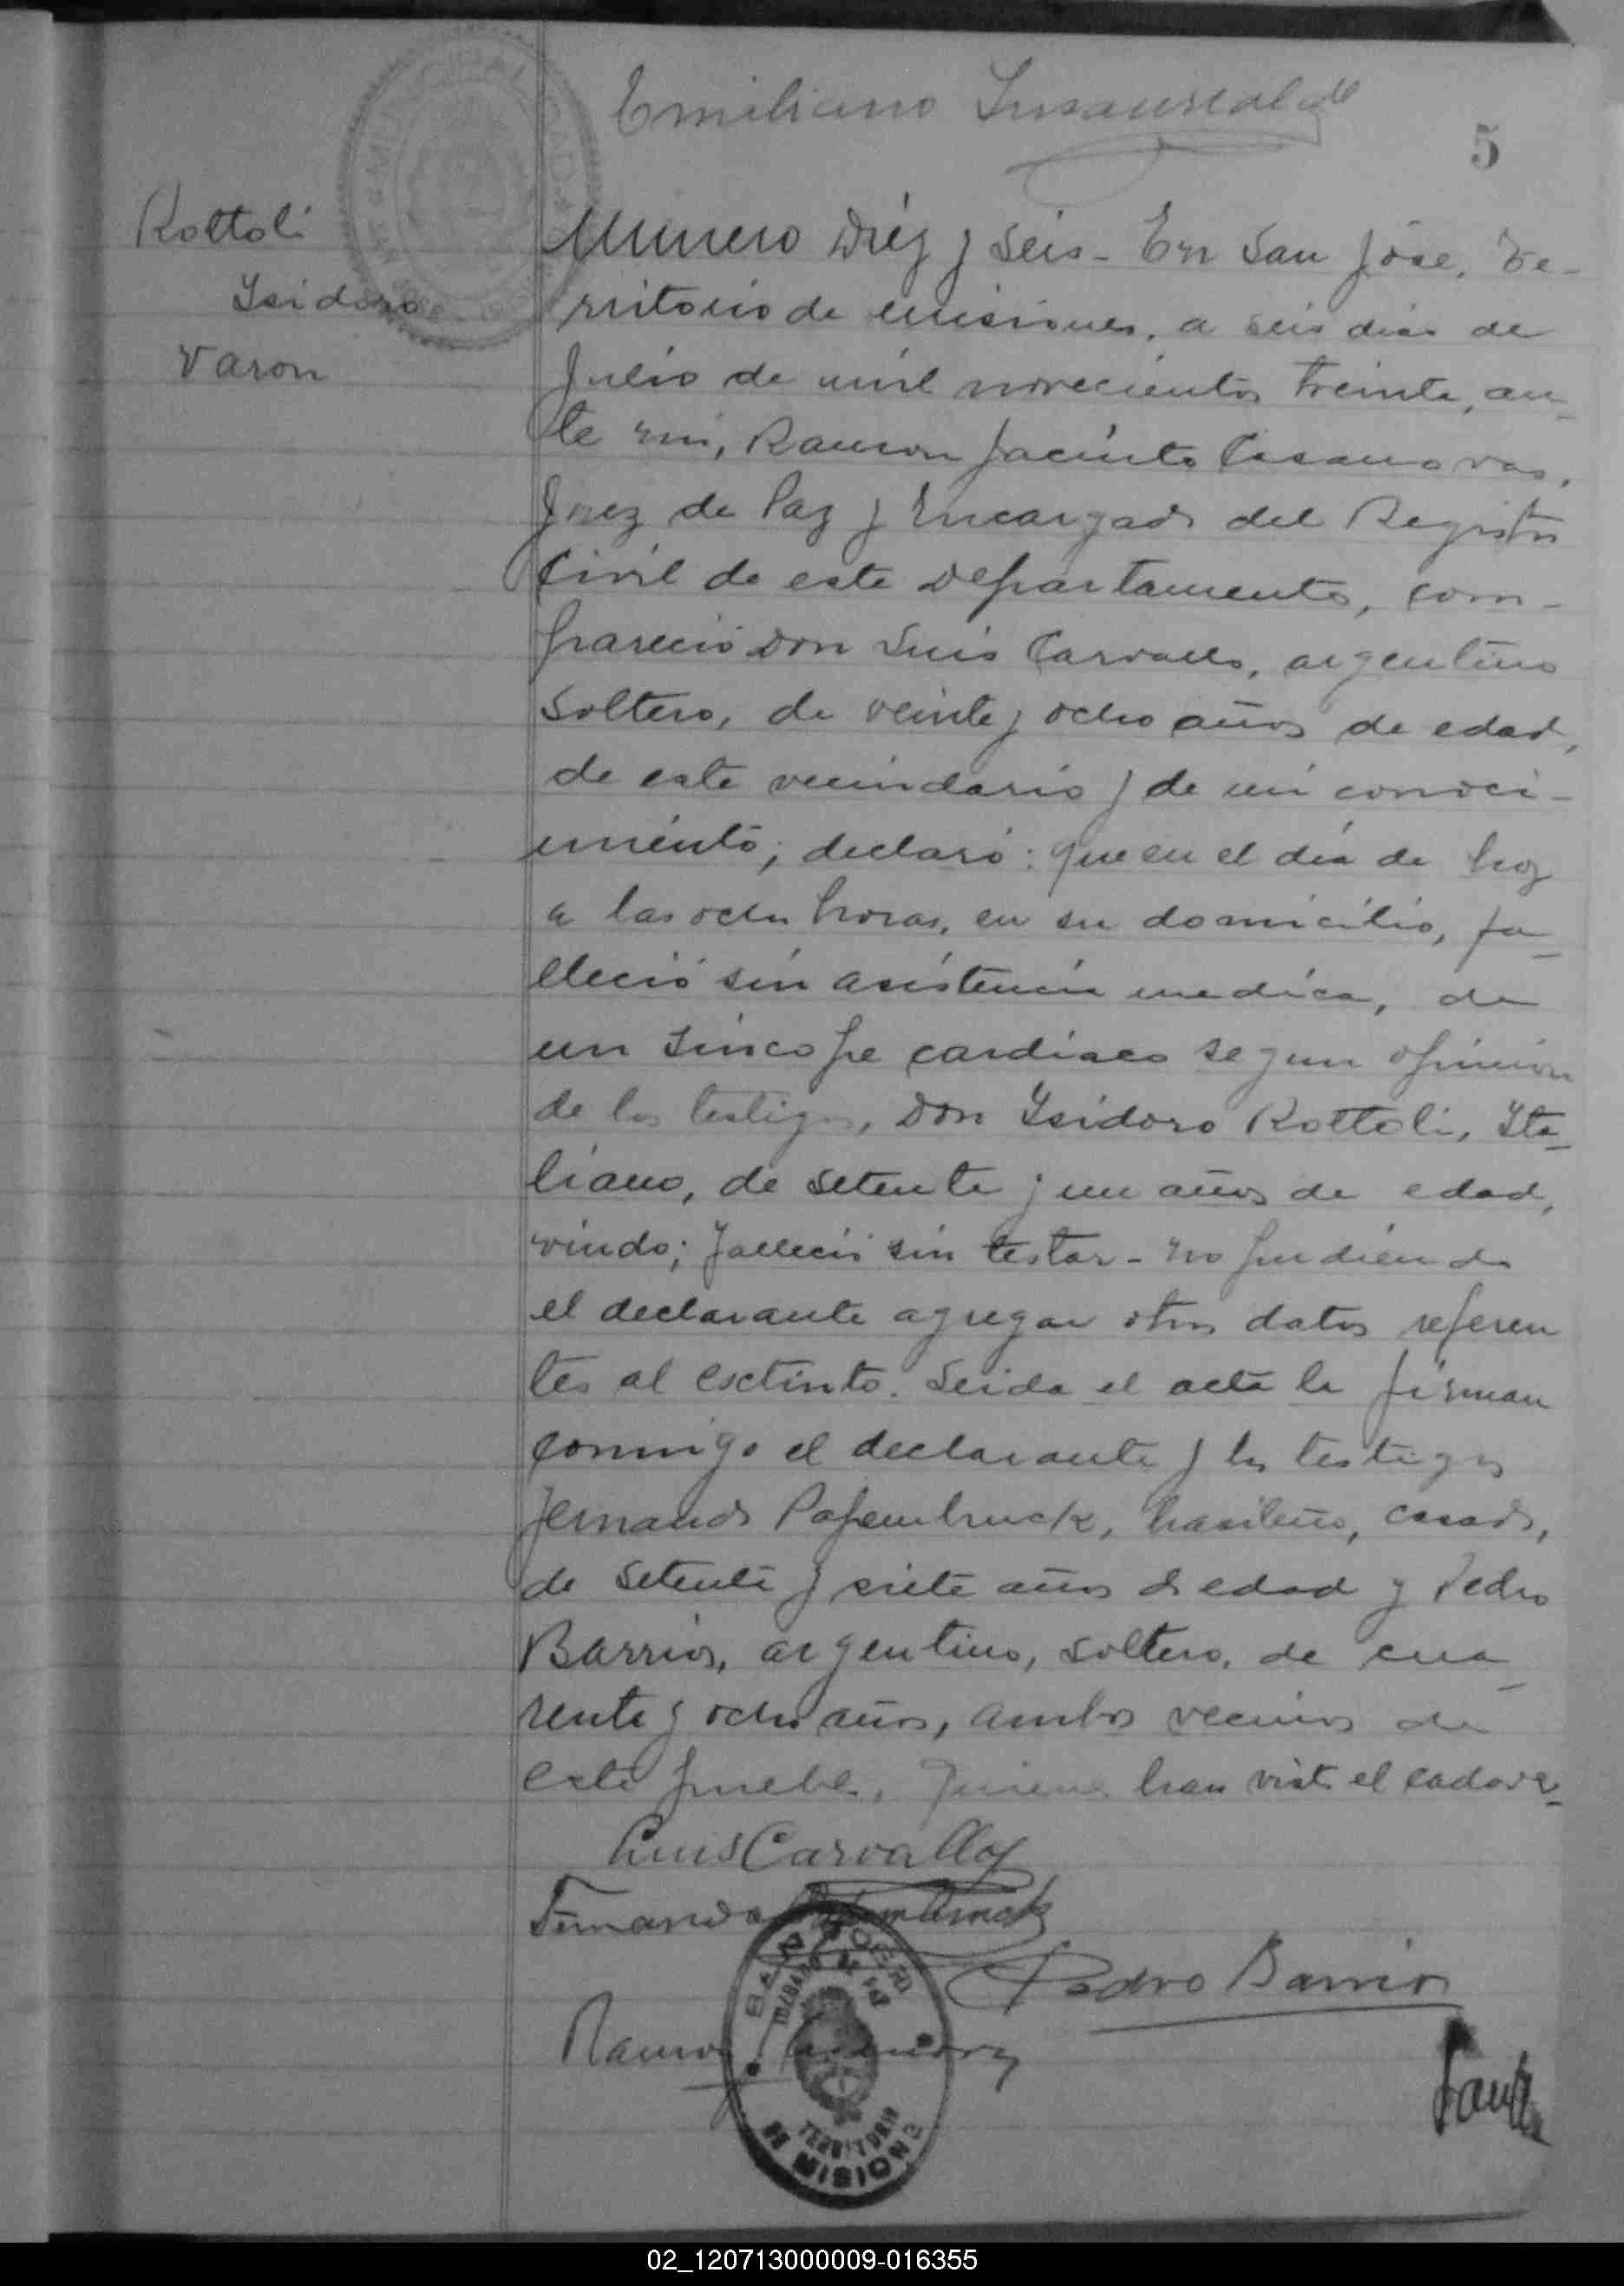 Emiliano Insaurralde
5
MUNICIPALIDAD
Rottoli
Isidoro
Varon
Numero Diéz y seis - En San José, Te-
rritorio de Misiones, a seis dias de
Julio de mil novecientos treinta, an-
te mi, Ramon Jacinto Casanovas,
Juez de Paz y Encargado del Registro
Civil de este Departamento, com-
pareció Don Luis Carvallo, argentino
soltero, de veinte y ocho años de edad,
de este vecindario y de mi conoci-
miento; declaró: que en el día de hoy
a las ocho horas, en su domicilio, fa-
lleció sin asistencia medica, de
un síncope cardiaco segun opinion
de los testigos, Don Isidoro Rottoli, Ita-
liano, de setenta y un años de edad,
viudo; falleció sin testar - no pudiendo
el declarante agregar otros datos referen
tes al esctinto. Leida el acta la firman
conmigo el declarante y los testigos
Fernando Papembruck, brasileño, casado,
de setenta y siete años de edad y Pedro
Barrios, argentino, soltero, de cua-
renta y ocho años, ambos vecinos de
este pueblo, quienes han visto el cadaver-
Luis Carvallo
Fernando
Pedro Barrios
Ramon
TERRITORIO
DE MISIONES
02_120713000009-016355